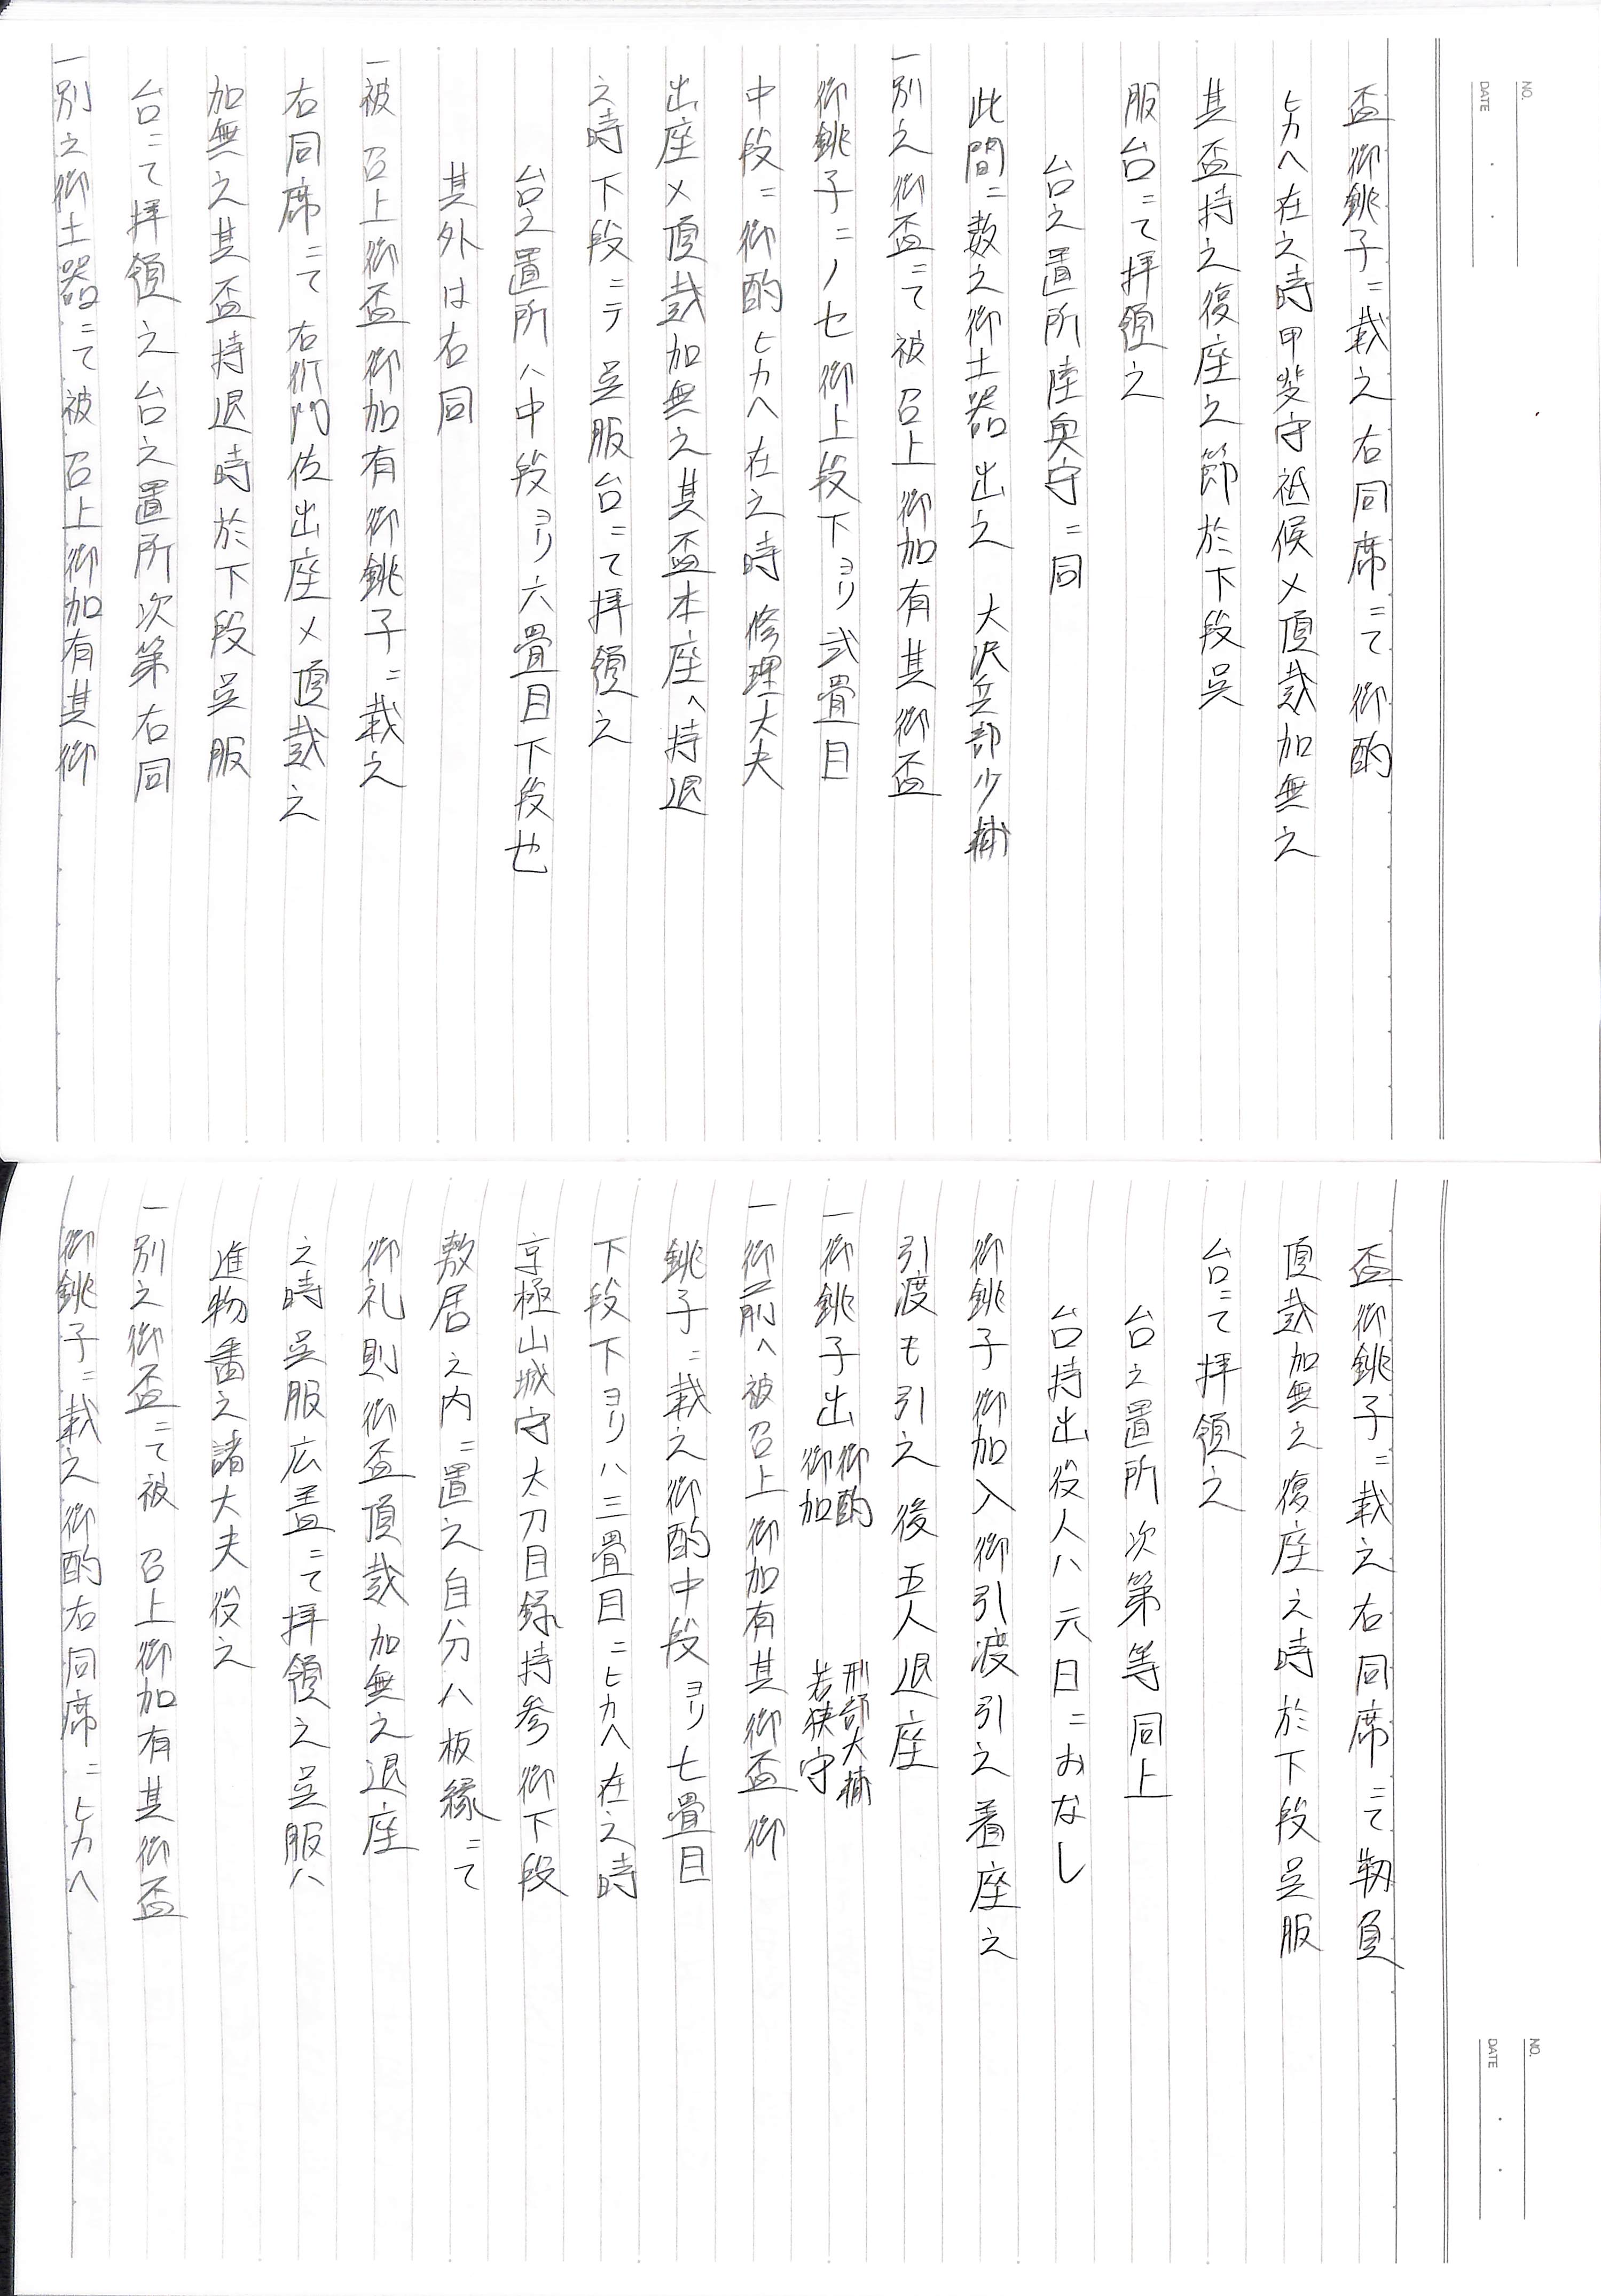 NO.
DATE
盃御銚子ニ載之右同席ニて御酌
ヒカヘ在之時甲斐守祗候〆頂戴加無之
其盃持之復座之節於下段呉
服台ニて拝領之
台之置所陸奥守ニ同
此間ニ数之御土器出之 大沢兵部少輔
一別之御盃ニて被召上御加有其御盃
御銚子ニノセ御上段下ヨリ弐畳目
中段ニ御酌ヒカヘ在之時修理大夫
出座〆頂戴加無之其盃本座へ持退
之時下段ニテ呉服台ニて拝領之
台之置所ハ中段ヨリ六畳目下段也
其外は右同
一被召上御盃御加有御銚子ニ載之
右同席ニて右衛門佐出座〆頂戴之
加無之其盃持退時於下段呉服
台ニて拝領之台之置所次第右同
一別之御土器ニて被召上御加有其御
NO.
DATE
盃御銚子ニ載之右同席ニて靱負
頂戴加無之復座之時於下段呉服
台ニて拝領之
台之置所次第等同上
台持出役人ハ元日ニおなし
御銚子御加入御引渡引之着座之
引渡も引之後五人退座
一御銚子出 御酌 刑部大輔
御加 若狭守
一御前へ被召上御加有其御盃御
銚子ニ載之御酌中段ヨリ七畳目
下段下ヨリハ三畳目ニヒカヘ在之時
京極山城守太刀目録持参御下段
敷居之内ニ置之自分ハ板縁ニて
御礼則御盃頂戴加無之退座
之時呉服広蓋ニて拝領之呉服ハ
進物番之諸大夫役之
一別之御盃ニて被召上御加有其御盃
御銚子ニ載之御酌右同席ニヒカヘ